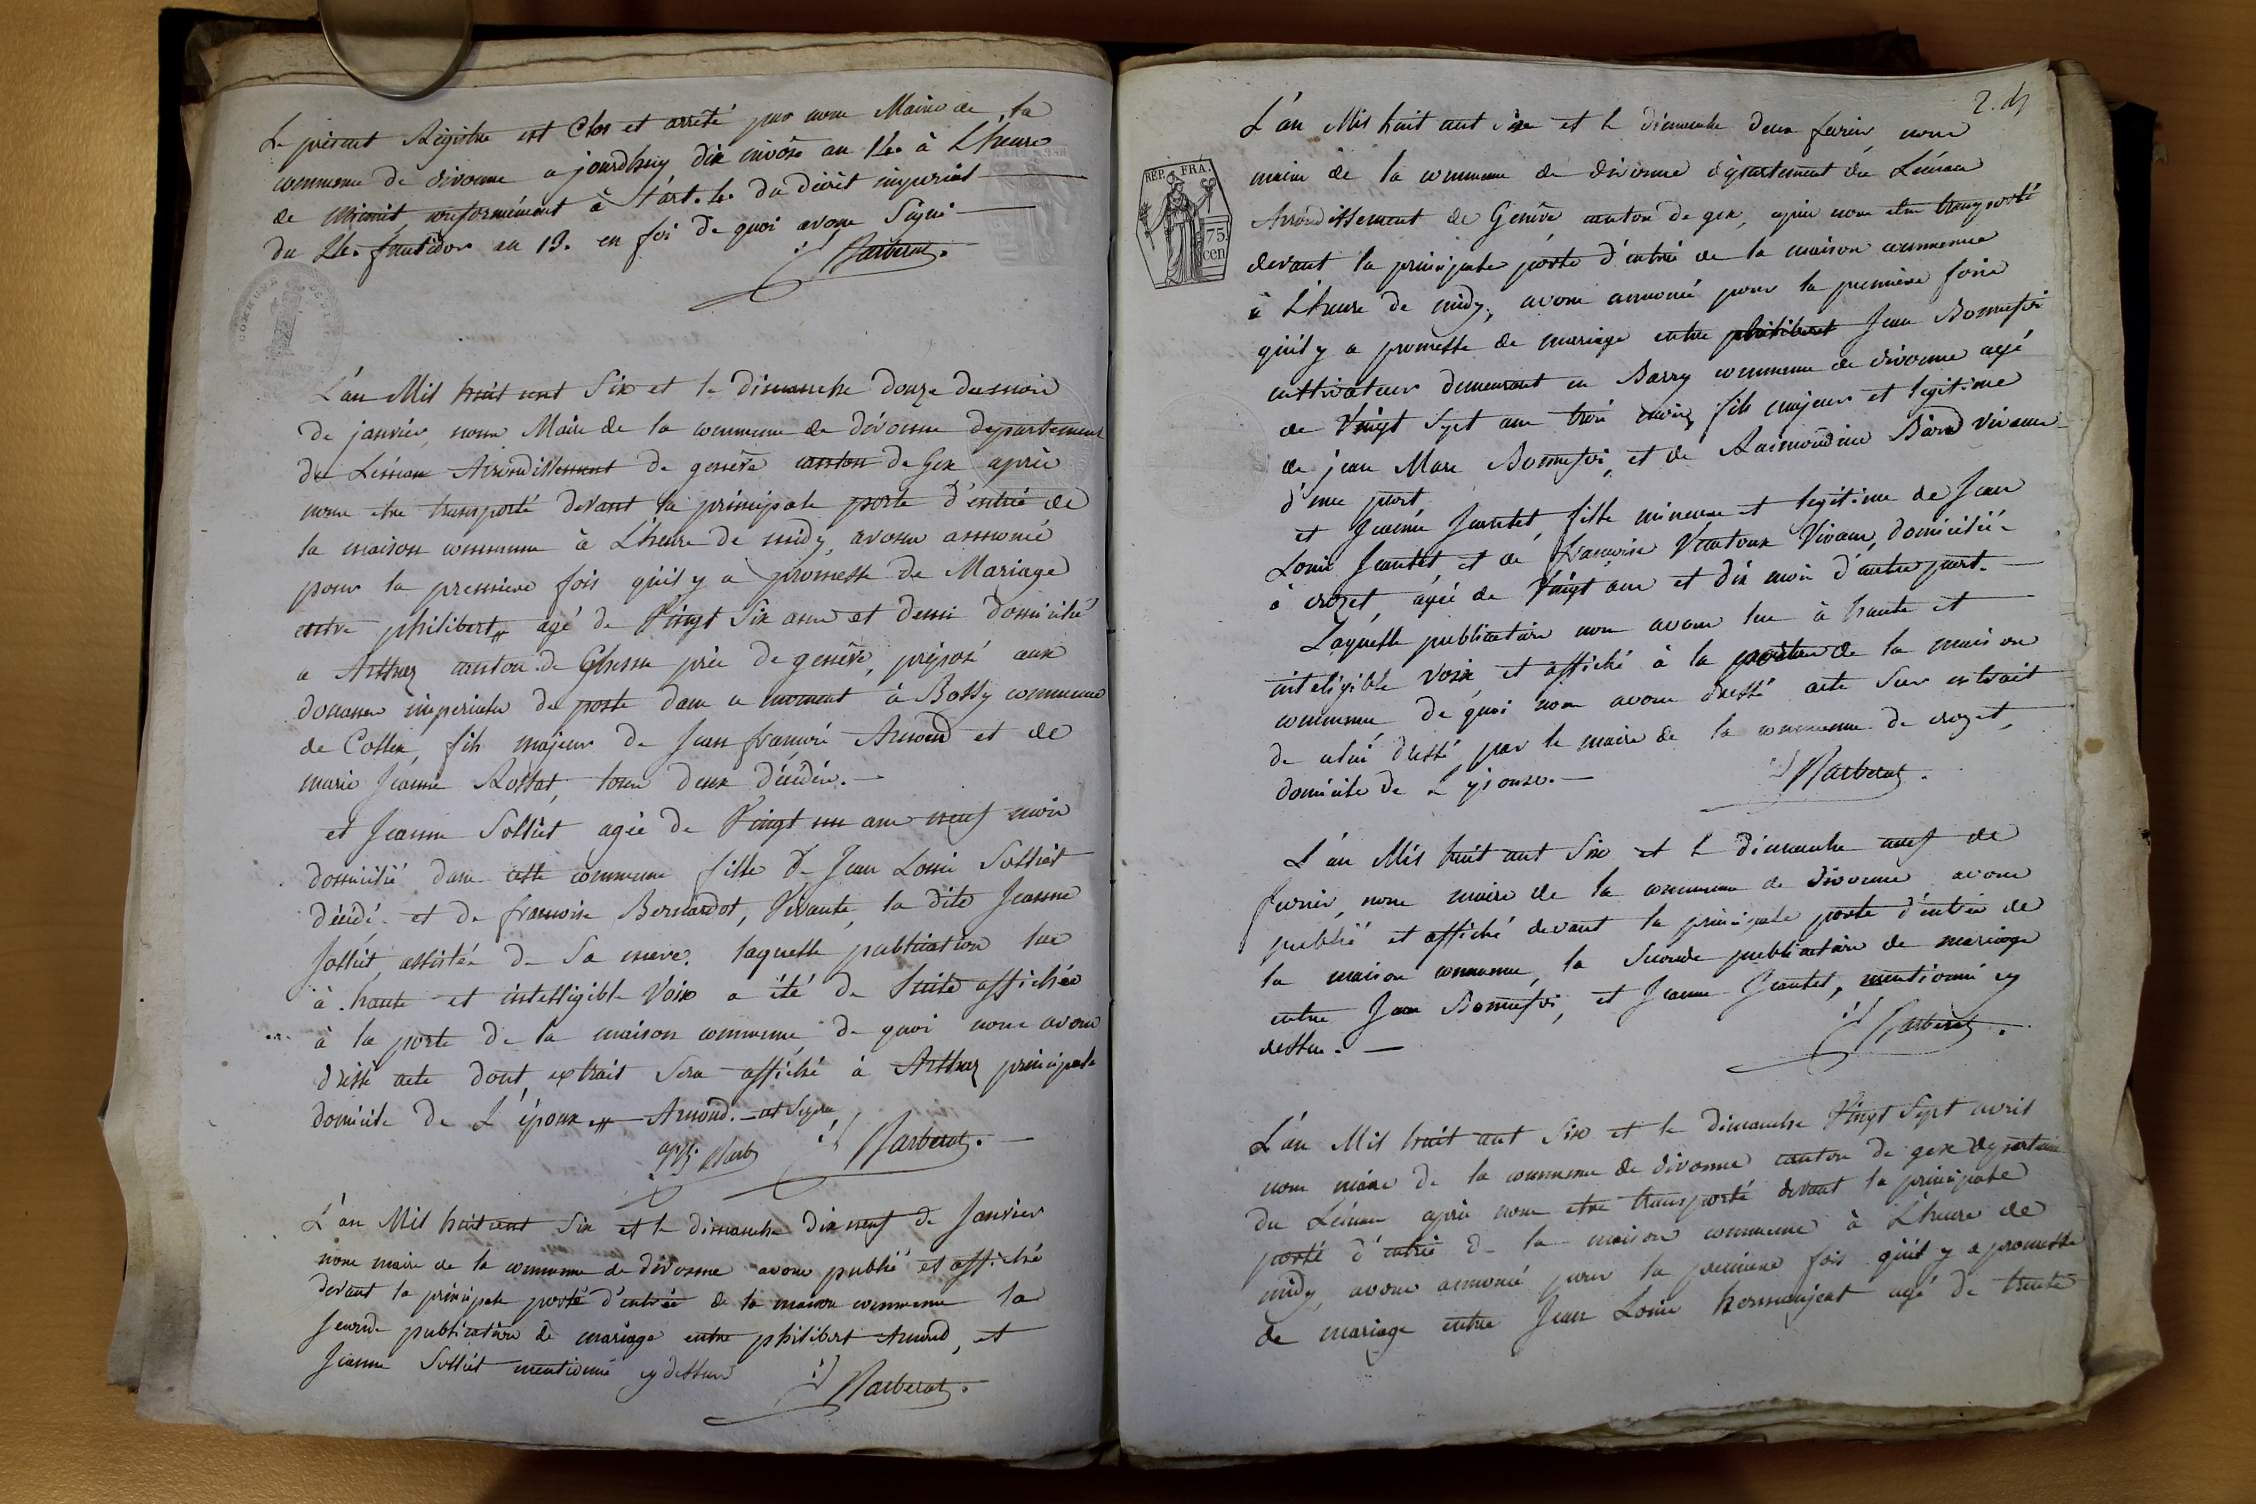 Le présent Régistre est Clos et arrêté par nous Maire de la
commune de divonne a jourdhuy dix nivôse an 14. à L'heure
de Minuit, conformément à l'art. 1er. du décrêt impérial
du 24. fructidor an 13. en foi de quoi avons Signé
Barberat.
COMMUNE DE
L'an Mil huit cent Six et le dimanche douze du mois
de janvier, nous Maire de la commune de divonne departement
du Léman Arrondissement de genève canton de Gex après
nous etre transporté devant la principale porte d'entrée de
la maison commune à L'heure de midy, avons annoncé
pour la premiere fois qu'il y a promesse de Mariage
entre philibert agé de Vingt Six ans et demi domicilié
a Arthaz canton de près de genêve, préposé aux
douanes impériales de poste dans ce moment à Bossy commune
de Collex, fils majeur de Jean françois Arnoud et de
marie Jeanne Rossat, tous deux décédés.
et Jeanne Solliet agée de Vingt un ans neuf mois
domicilié dans cette commune fille de Jean Louis Solliet
décédé et de francoise Bernardot, Vivante, la dite Jeanne
Solliet, assistée de Sa mere. laquelle publication lue
à haute et intelligible Voix a été de Suite affichée
à la porte de la maison commune de quoi nous avons
dréssé acte dont extrait Sera affiché à Arthaz principale
domicile de L'époux Arnoud. et Signé
app. Barb Barberat.
L'an Mil huit cent Six et le dimanche dix neuf de Janvier
nous maire de la commune de divonne avons publié et affiché
devant la principale porte d'entrée de la maison commune la
Seconde publication de mariage entre philibert Arnoud, et
Jeanne Solliet mentionné cy dessus
Barberat.
2.
REP. FRA.
75
cen
L'an Mil huit cent Six et le dimanche deux fevrier nous
maire de la commune de divonne département du Léman
Arrondissement de Genêve, canton de gex, après nous etre transporté
devant la principale porte d'entrée de la maison commune
à L'heure de midy, avons annoncé pour la premiere fois
qu'il y a promesse de mariage entre philibert Jean Bonnefoi
cultivateur demeurant en Barry commune de divonne agé
de Vingt Sept ans trois mois, fils majeur et legitime
de jean Marc Bonnefoi, et de Raimondine vivans
d'une part
et Jeanne Jeantet, fille mineure et legitime de Jean
Louis Jeantet et de francoise Vivans, domiciliée
à crozet, âgée de Vingt ans et dix mois d'autre part.
Laquelle publication nous avons lue à haute et
inteligible Voix et affiché à la porte de la maison
commune, de quoi nous avons dressé acte Sur extrait
de celui dressé, par le maire de la commune de crozet,
domicile de L'épouse.
Barberat.
L'an Mil huit cent Six et le dimanche neuf de
fevrier, nous maire de la commune de divonne avons
publié et affiché devant la principale porte d'entrée de
la maison commune, la Seconde publication de mariage
entre Jean Bonnefoi, et Jeanne Jeantet, mentionné cy
dessus.
Barberat.
L'an Mil huit cent Six et le dimanche Vingt Sept avril
nous maire de la commune de divonne canton de gex departement
du Léman après nous etre transporté devant la principale
porte d'entrée de la maison commune à L'heure de
midy, avons annoncé pour la premiere fois qu'il y a promesse
de mariage entre Jean Louis hermanjeat agé de trente